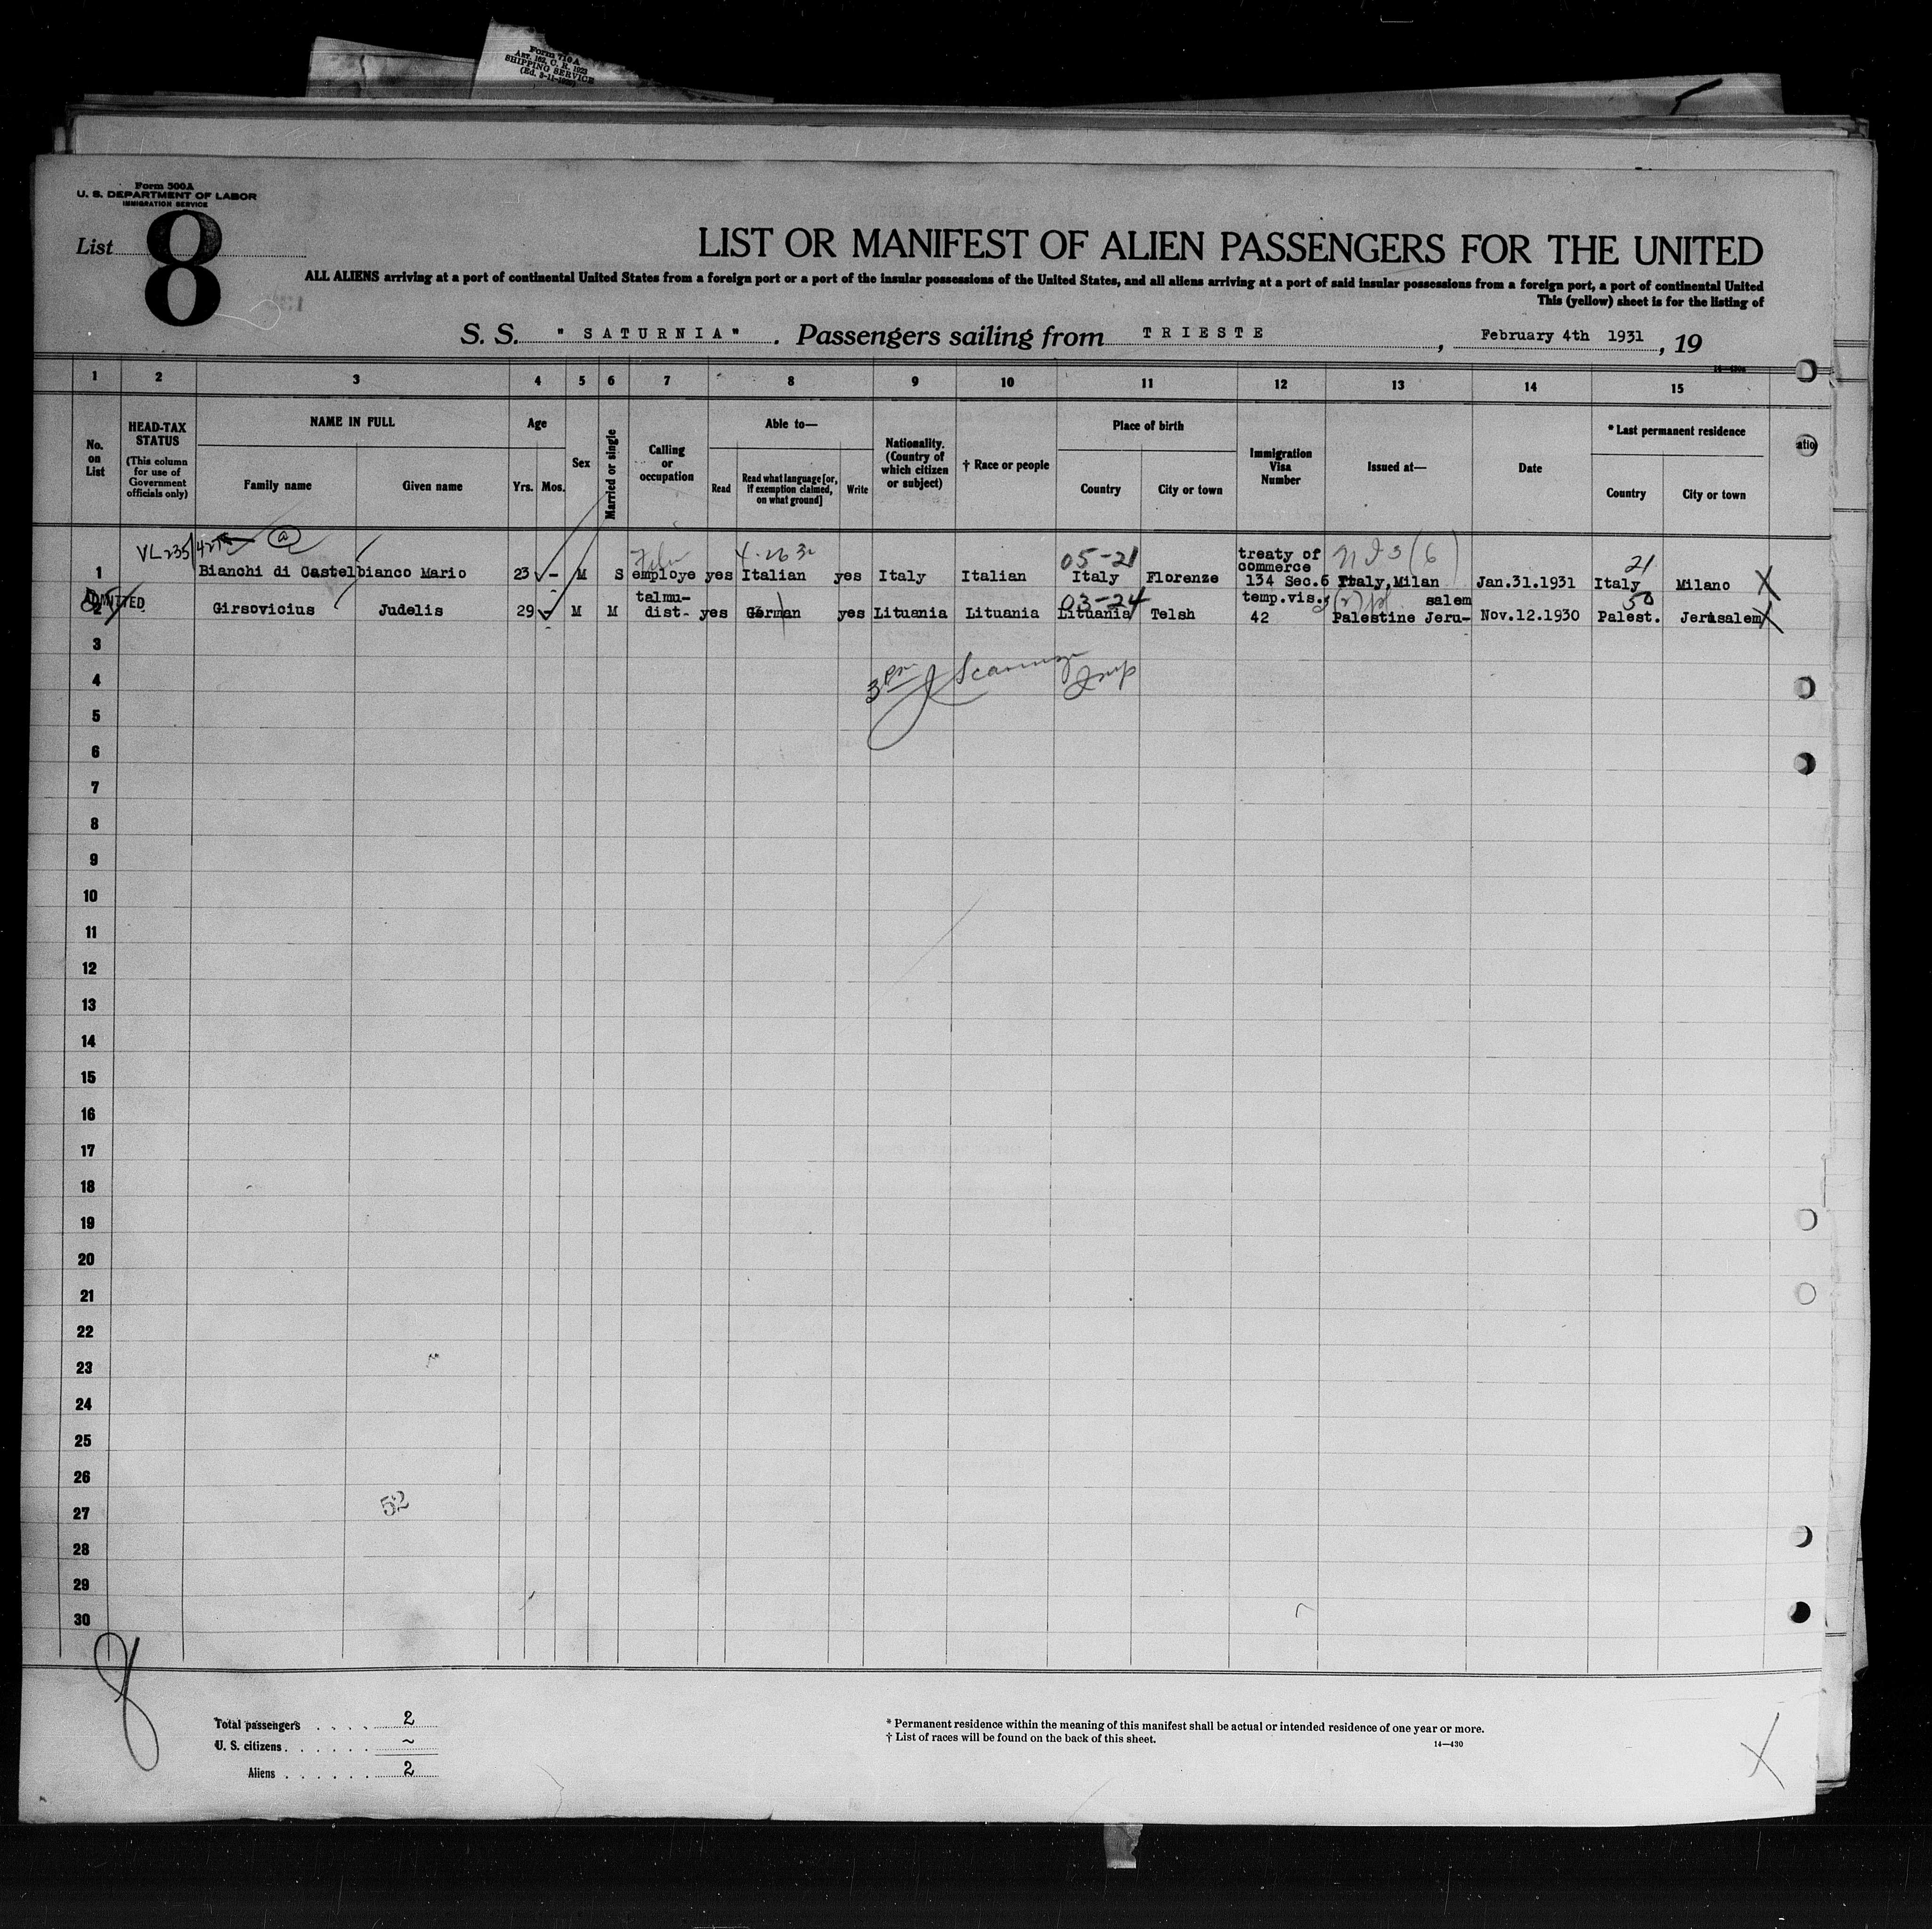 Form 710 A
Art. 162, C. R. 1923
SHIPPING SERVICE
Form 500A
U. S. DEPARTMENT OF LABOR
IMMIGRATION SERVICE
List 8
LIST OR MANIFEST OF ALIEN PASSENGERS FOR THE UNITED
ALL ALIENS arriving at a port of continental United States from a foreign port or a port of the insular possessions of the United States, and all aliens arriving at a port of said insular possessions from a foreign port, a port of continental United
This (yellow) sheet is for the listing of
S. S. " SATURNIA " . Passengers sailing from TRIESTE , February 4th 1931 , 19
1 2 3 4 5 6 7 8 9 10 11 12 13 14 15
No. on List
HEAD-TAX STATUS
(This column for use of Government officials only)
NAME IN FULL
Family name Given name
Age
Yrs. Mos.
Sex
Married or single
Calling or occupation
Able to—
Read
Read what language [or, if exemption claimed, on what ground]
Write
Nationality. (Country of which citizen or subject)
† Race or people
Place of birth
Country City or town
Immigration Visa Number
Issued at—
Date
* Last permanent residence
Country City or town
VL 235/427 a 4-263 05-21 treaty of commerce 21
1 Bianchi di Castelbianco Mario 23 - M S employe yes Italian yes Italy Italian Italy Florenze 134 Sec.6 Italy,Milan Jan.31.1931 Italy Milano X
ADMITTED talmu- 03-24 temp.vis. salem 50
2 Girsovicius Judelis 29 - M M dist. yes German yes Lituania Lituania Lituania Telsh 42 Palestine Jeru- Nov.12.1930 Palest. Jerusalem X
3
4
5
6
7
8
9
10
11
12
13
14
15
16
17
18
19
20
21
22
23
24
25
26
27
52
28
29
30
8
Total passengers . . . . 2
U. S. citizens . . . . . . ~
Aliens . . . . . . 2
* Permanent residence within the meaning of this manifest shall be actual or intended residence of one year or more.
† List of races will be found on the back of this sheet.
14—430
X